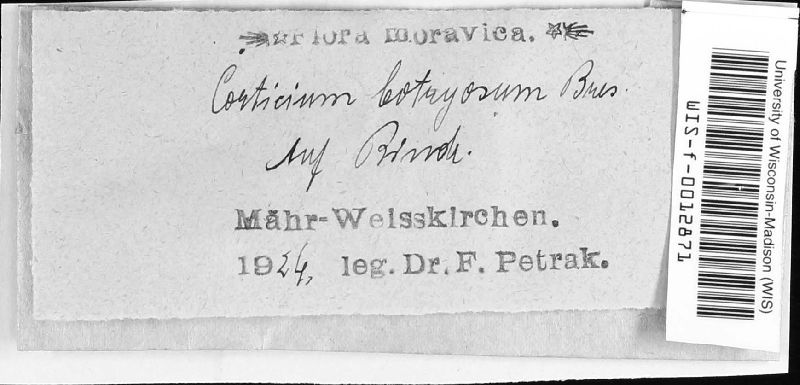 Flora moravica.
Corticium botryosum Bres.
Auf Rinde.
Mähr-Weisskirchen.
1924, leg. Dr. F. Petrak.
University of Wisconsin-Madison (WIS)
WIS-f-0012871